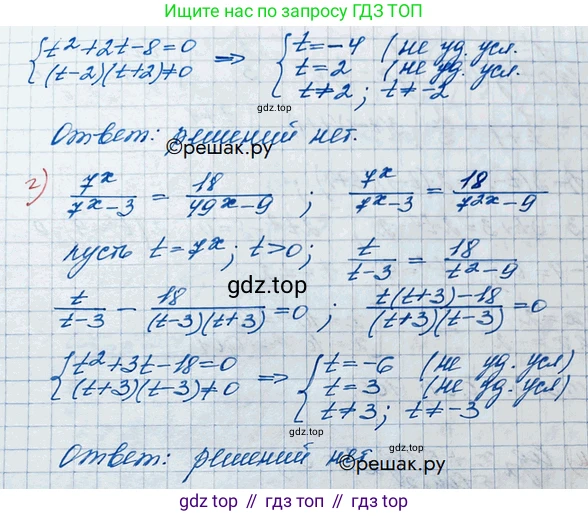 Ищите нас в интернете по
запросу ГДЗ ТОП
{ t² + 2t - 8 = 0 ⇒ { t = -4 (не уд. усл.
(t-2)(t+2) ≠ 0 t = 2 (не уд. усл.
t ≠ 2; t ≠ -2
gdz.top
Ответ: решений нет.
©reшак.ру
г) 7ˣ/(7ˣ-3) = 18/(49ˣ-9) ; 7ˣ/(7ˣ-3) = 18/(7²ˣ-9)
пусть t = 7ˣ; t>0; t/(t-3) = 18/(t²-9)
gdz.top
t/(t-3) - 18/((t-3)(t+3)) = 0 ; (t(t+3)-18)/((t+3)(t-3)) = 0
{ t² + 3t - 18 = 0 ⇒ { t = -6 (не уд. усл)
(t+3)(t-3) ≠ 0 t = 3 (не уд. усл)
t ≠ 3; t ≠ -3
gdz.top
Ответ: решений нет.
©reшак.ру
gdz top // гдз топ // gdz.top